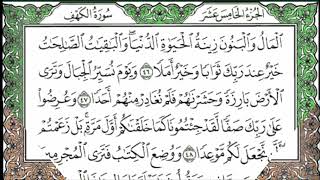 الجزء الخامس عشر
سورة الكهف
الْمَالُ وَالْبَنُونَ زِينَةُ الْحَيَوٰةِ الدُّنْيَا وَالْبَٰقِيَٰتُ الصَّٰلِحَٰتُ
خَيْرٌ عِندَ رَبِّكَ ثَوَابًا وَخَيْرٌ أَمَلًا ٤٦ وَيَوْمَ نُسَيِّرُ الْجِبَالَ وَتَرَى
الْأَرْضَ بَارِزَةً وَحَشَرْنَٰهُمْ فَلَمْ نُغَادِرْ مِنْهُمْ أَحَدًا ٤٧ وَعُرِضُوا
عَلَىٰ رَبِّكَ صَفًّا لَّقَدْ جِئْتُمُونَا كَمَا خَلَقْنَٰكُمْ أَوَّلَ مَرَّةٍ بَلْ زَعَمْتُمْ
نَّجْعَلَ لَكُم مَّوْعِدًا ٤٨ وَوُضِعَ الْكِتَٰبُ فَتَرَى الْمُجْرِمِينَ